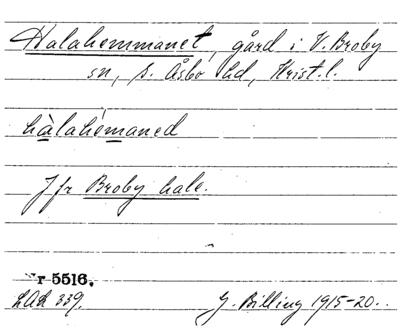 Halahemmanet, gård i V. Broby
sn, S. Åsbo hd, Krist. l.
hàlahémaned
Jfr Broby hale.
r 5516.
LAL 339.
G. Billing 1915-20.